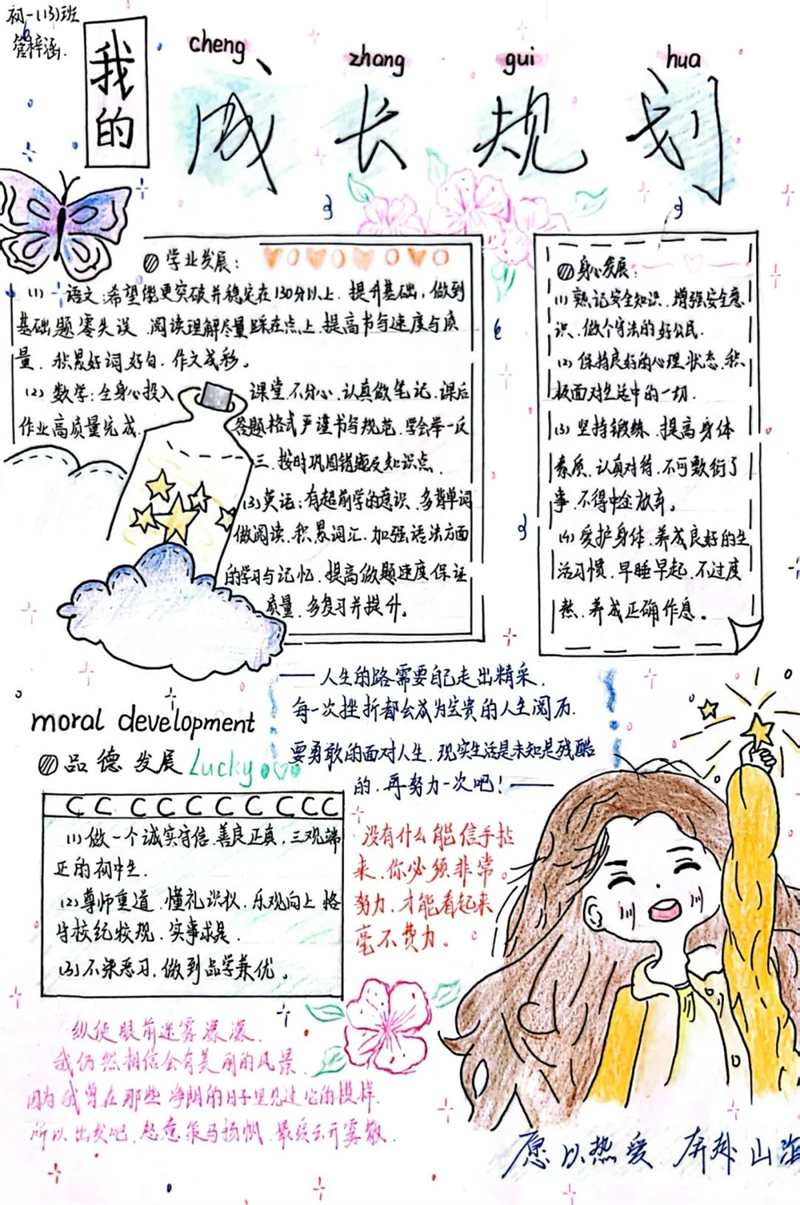 初一(13)班
管梓涵.
我的
cheng zhang gui hua
成长规划
学业发展:
(1) 语文:希望能更突破并稳定在130分以上.提升基础,做到
基础题零失误.阅读理解尽量踩在点上.提高书写速度与质
量.积累好词好句.作文成彩。
(2) 数学:全身心投入 课堂.不分心.认真做笔记.课后
作业高质量完成. 答题格式严谨书写规范.学会举一反
三.按时巩固错题及知识点.
(3)英语:有超前学的意识.多背单词
做阅读.积累词汇.加强语法方面
的学习与记忆.提高做题速度保证
质量.多复习并提升。
身心发展:
(1) 熟记安全知识.增强安全意
识.做个守法的好公民.
(2) 保持良好的心理状态.积
极面对生活中的一切.
(3) 坚持锻练.提高身体
素质.认真对待.不可敷衍了
事.不得中途放弃。
(4) 爱护身体.养成良好的生
活习惯.早睡早起.不过度
熬.养成正确作息。
——人生的路需要自己走出精采.
每一次挫折都会成为宝贵的人生阅历.
要勇敢的面对人生.现实生活是未知是残酷
的.再努力一次吧!——
moral development
品德发展 Lucky
(1) 做一个诚实守信.善良正真,三观端
正的初中生.
(2) 尊师重道.懂礼识仪.乐观向上 格
守校纪校规.实事求是.
(3) 不染恶习.做到品学兼优。
没有什么能信手拈
来.你必须非常
努力.才能看起来
毫不费力。
纵使眼前迷雾漾漾.
我仍然相信会有美丽的风景.
因为我曾在那些净朗的日子里见过它的模样.
所以出发吧.恣意策马扬帆.最终云开雾散.
愿以热爱 奔赴山海